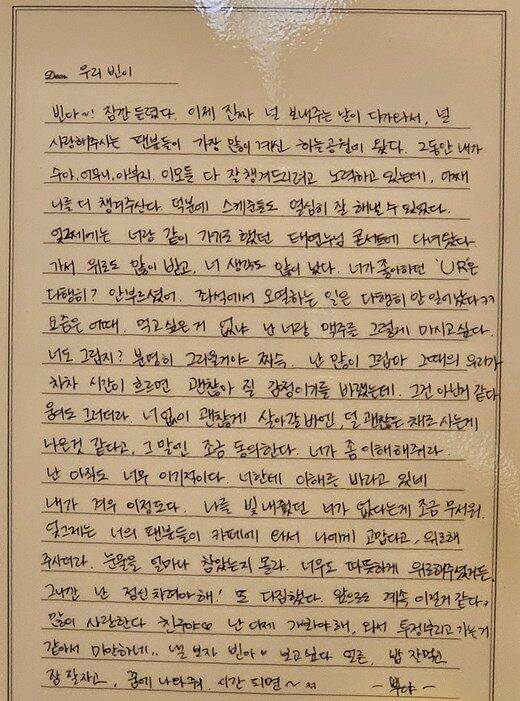 Dear 우리 빈이
빈아~! 잠깐 들렸다. 이제 진짜 널 보내주는 날이 다가와서, 널
사랑해주시는 팬분들이 가장 많이 계신 하늘공원에 왔다. 그동안 내가
수아, 어머니, 아부지, 이모들 다 잘 챙겨드리려고 노력하고 있는데, 어째
나를 더 챙겨주신다. 덕분에 스케쥴들도 열심히 잘 해낼 수 있었다.
엊그제에는 너랑 같이 가기로 했던 태연누님 콘서트에 다녀왔다
가서 위로도 많이 받고, 너 생각도 많이 났다. 너가 좋아하던 'UR'은
다행히? 안부르셨어. 좌석에서 오열하는 일은 다행히 안 일어났다ㅋㅋ
요즘은 어때. 먹고싶은 거 없냐 난 너랑 맥주를 그렇게 마시고싶다.
너도 그립지? 분명히 그리울거야 짜슥. 난 많이 그립다 그때의 우리가
차차 시간이 흐르면 괜찮아 질 감정이기를 바랬는데. 그건 아닌거 같다
몽이도 그러더라. 너 없이 괜찮게 살아갈 바엔, 덜 괜찮은 채로 사는게
나은것 같다고, 그 말엔 조금 동의한다. 너가 좀 이해해줘라.
난 아직도 너무 이기적이다. 너한테 이해를 바라고 있네
내가 겨우 이정도다. 나를 빛내줬던 너가 없다는게 조금 무서워.
엊그제는 너의 팬분들이 카페에 와서 나에게 고맙다고, 위로해
주시더라. 눈물을 얼마나 참았는지 몰라. 너무도 따뜻하게 위로해주셨거든.
그니깐 난 정신차려야해! 또 다짐했다. 앞으로도 계속 이럴거 같다.
많이 사랑한다 친구야∞ 난 이제 개화야해, 와서 투정부리고 가는거
같아서 미안하네.. 낼 보자 빈아♡ 보고싶다 얼른, 밥 잘먹고
잠 잘자고, 꿈에 나타줘. 시간 되면~ ㅉ
- 뿌야 -